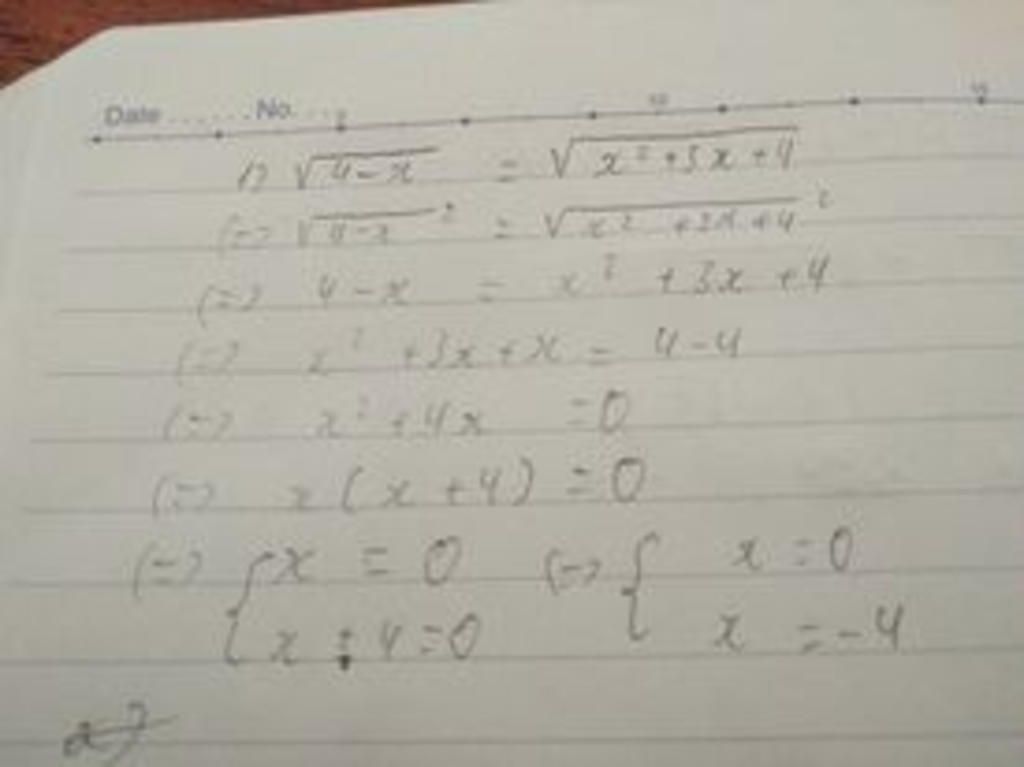 Date ...... No. ...
5 10 15
1) √(4-x) = √(x² + 3x + 4)
(=) √(4-x)² = √(x² + 3x + 4)²
(=) 4-x = x² + 3x + 4
(=) x² + 3x + x = 4-4
(=) x² + 4x = 0
(=) x(x + 4) = 0
(=) { x = 0 (=) { x = 0
x + 4 = 0 x = -4